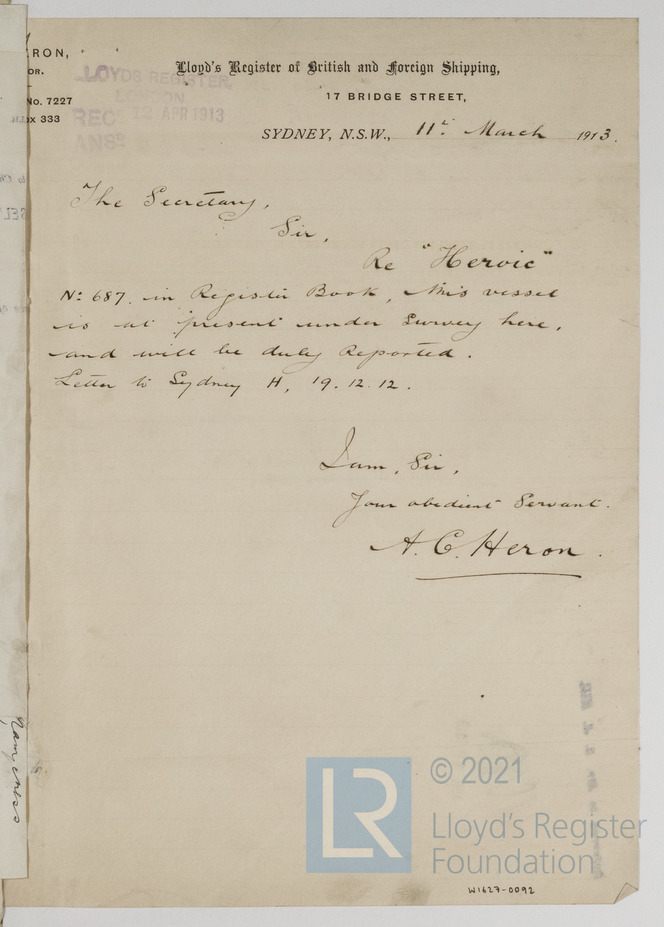 RON,
OR.
No. 7227
ox 333
LLOYDS REGISTER,
LONDON
REC 12 APR 1913
ANSD
Lloyd's Register of British and Foreign Shipping,
17 BRIDGE STREET,
SYDNEY, N.S.W., 11th March 1913.
The Secretary,
Sir,
Re "Heroic"
No: 687. in Register Book, this vessel
is at present under Survey here,
and will be duly Reported.
Letter to Sydney H, 19.12.12.
I am, Sir,
Your obedient Servant.
A. C. Heron.
© 2021
LR
Lloyd's Register
Foundation
W1627-0092